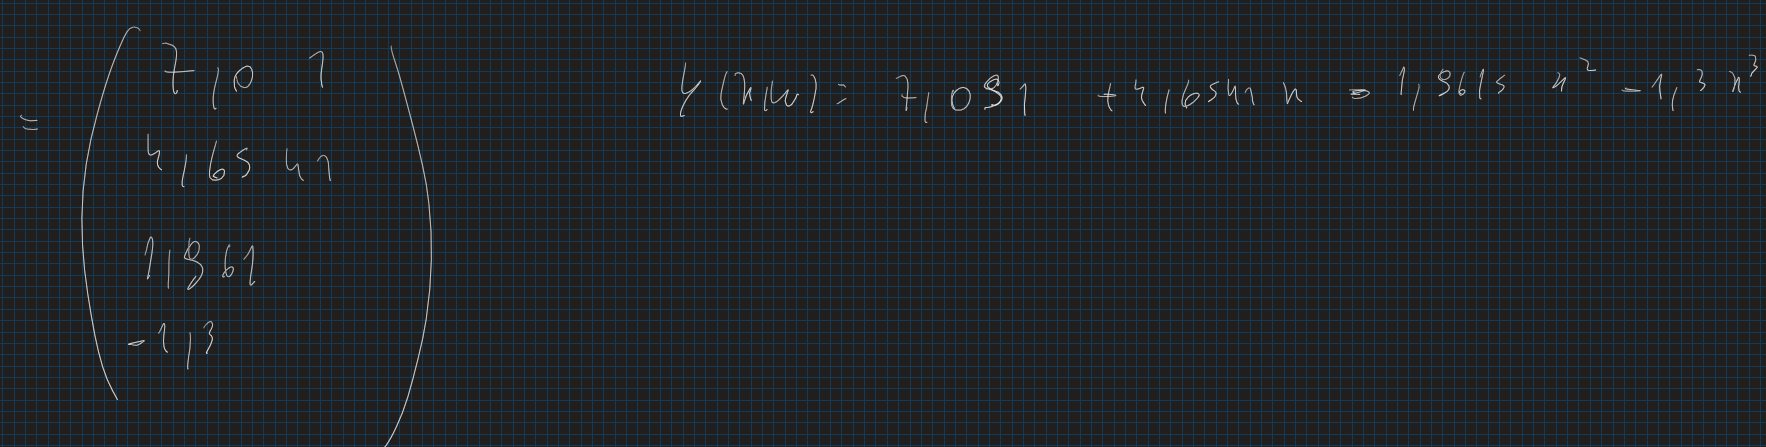 = ( 7,0 1
4,65 41
1,861
-1,3 )
y(x,w) = 7,091 + 4,6541 x - 1,9615 x² - 1,3 x³